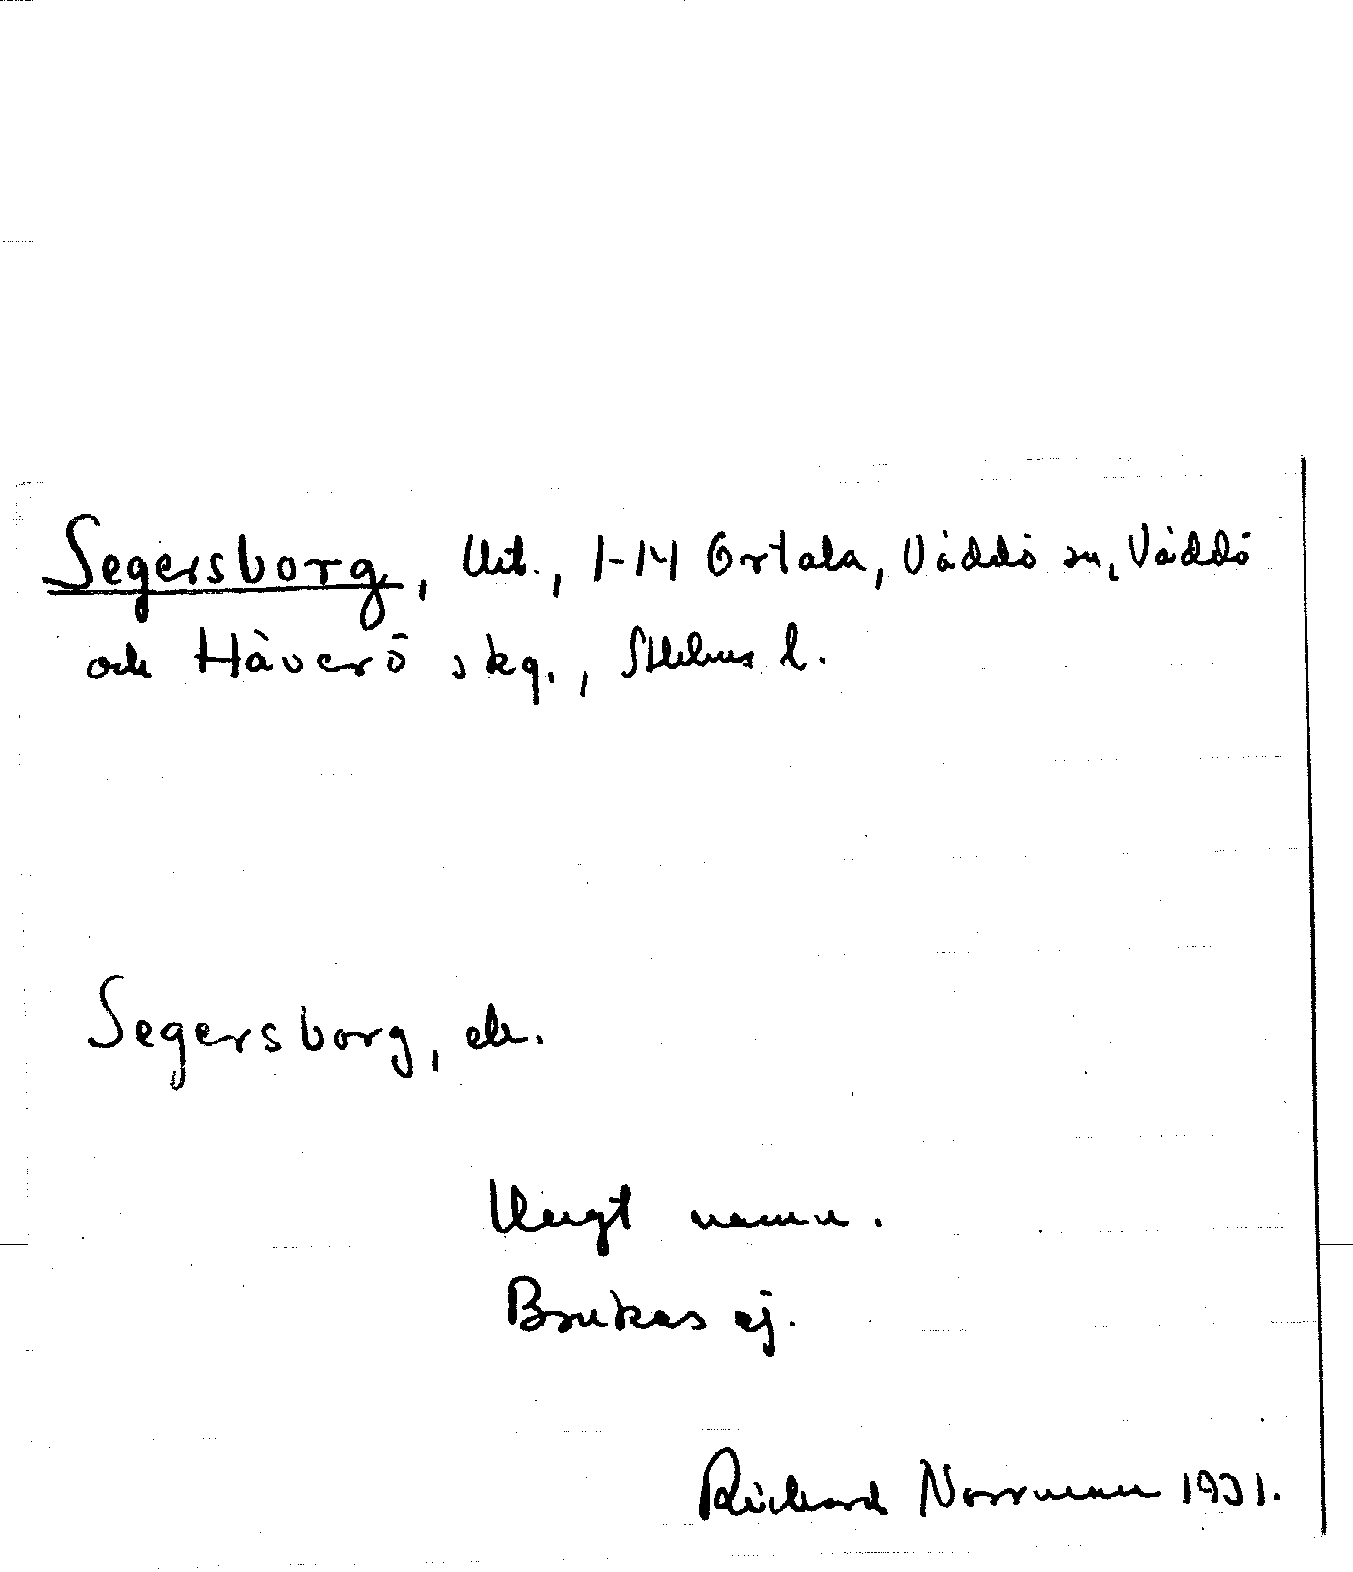 Segersborg, Utt., 1-14 Ortala, Väddö sn, Väddö
och Häverö skg., Sthlms l.
Segersborg,
Ungt namn.
Brukas ej.
Richard Norrman 1931.